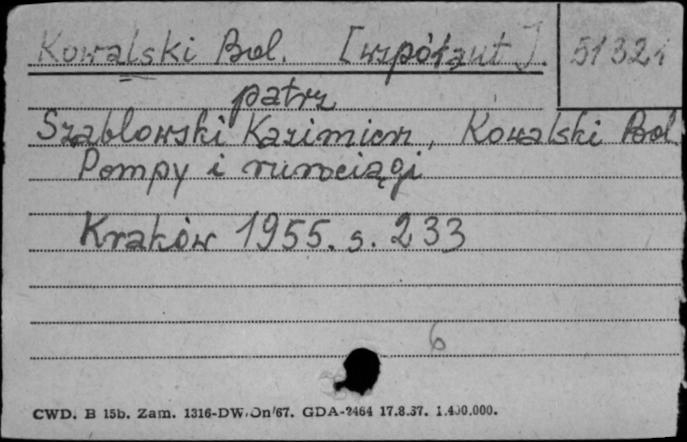 Kowalski Bol. [współaut]. 51321
patrz
Szabłowski Kazimierz, Kowalski Bol.
Pompy i rurociągi
Kraków 1955. s. 233
6
CWD. B 15b. Zam. 1316-DW/Dn/67. GDA-2464 17.8.67. 1.400.000.